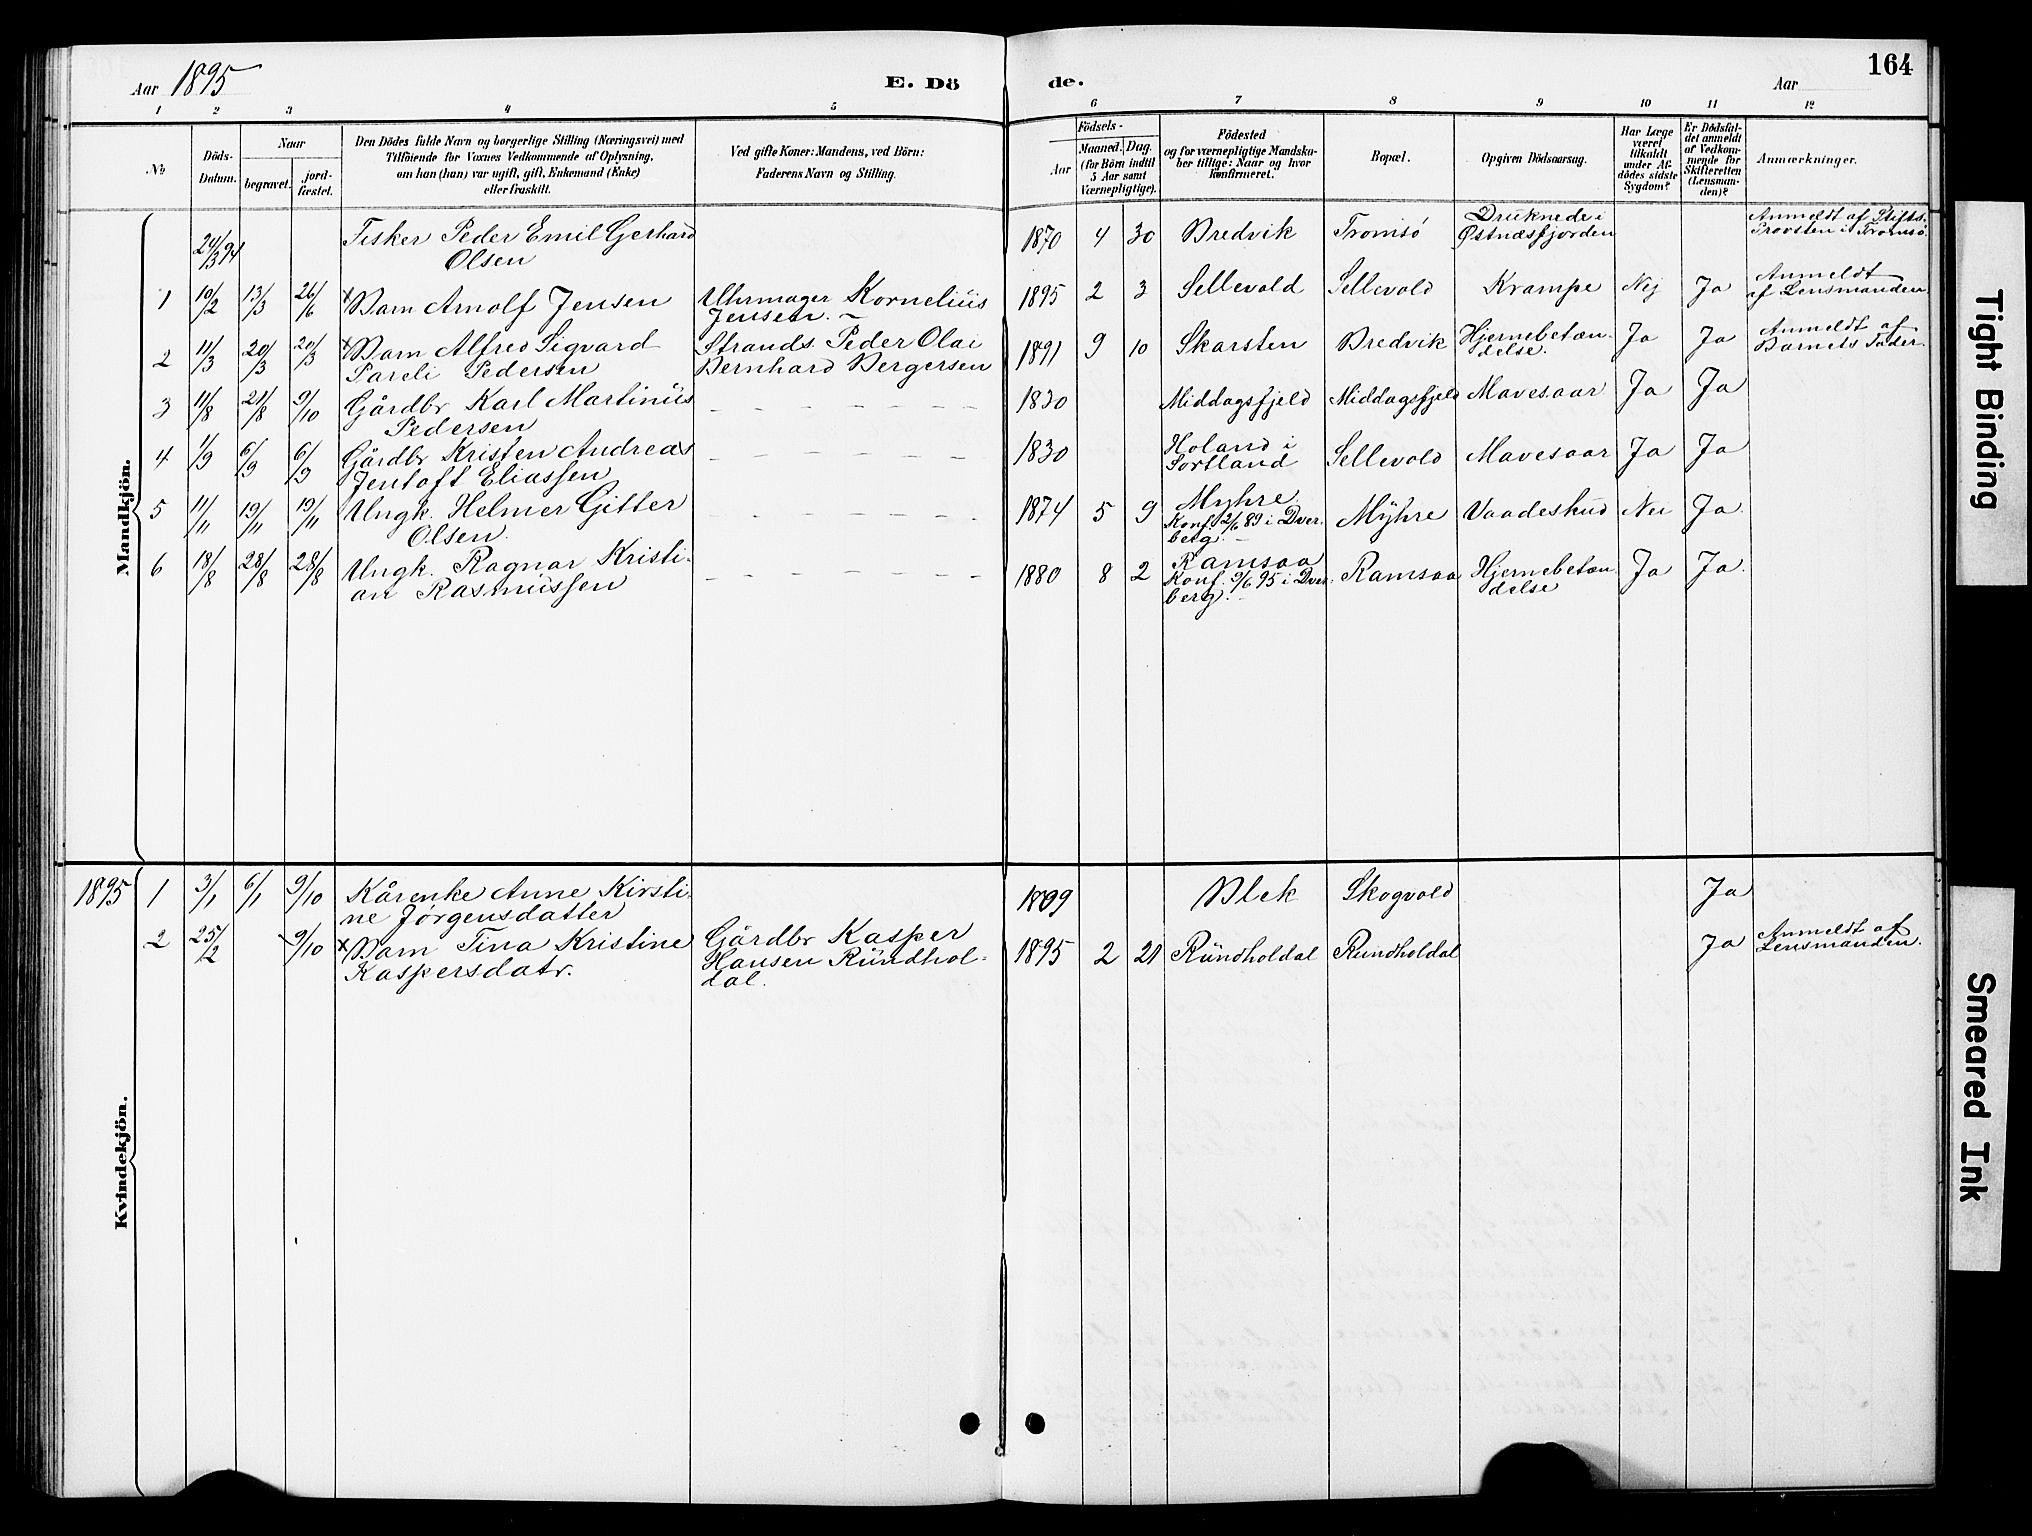 Aar 1895
E. Dö
de.
Aar
164
1 2 3 4 5 6 7 8 9 10 11 12
No
Döds-Datum.
Naar
begravet.
jord-fæstet.
Den Dödes fulde Navn og borgerlige Stilling (Næringsvei) med
Tilföiende for Voxnes Vedkommende af Oplysning,
om han (hun) var ugift, gift, Enkemand (Enke)
eller fraskilt.
Ved gifte Koner: Mandens, ved Börn:
Faderens Navn og Stilling.
Födsels-
Aar
Maaned. Dag.
(for Börn indtil
5 Aar samt
Værnepligtige).
Födested
og for værnepligtige Mandska-
ber tillige: Naar og hvor
konfirmeret.
Bopæl.
Opgiven Dödsaarsag.
Har Læge
været
tilkaldt
under Af-
dödes sidste
Sygdom?
Er Dödsfal-
det anmeldt
af Vedkom-
mende for
Skifteretten
(Lensman-
den)?
Anmærkninger.
Mandkjön.
24/3 94 Fisker Peder Emil Gerhard 1870 4 30 Bredvik Tromsö Druknede i Anmeldt af Stifts-
Olsen Østnæsfjorden Provsten i Tromsö.
1 10/2 13/3 26/6 Barn Arnolf Jensen Uhrmager Kornelius 1895 2 3 Sellevold Sellevold Krampe Nej Ja Anmeldt
Jensen. af Lensmanden
2 11/3 20/3 20/3 Barn Alfred Sigvard Strands. Peder Olai 1891 9 10 Skarsten Bredvik Hjernebetæn- Ja Ja Anmeldt af
Pareli Pedersen Bernhard Bergersen delse. Barnets Fader.
3 11/8 21/8 9/10 Gårdbr Karl Martinus 1830 Middagsfjeld Middagsfjeld Mavesaar Ja Ja
Pedersen
4 1/9 6/9 6/9 Gårdbr Kristen Andreas 1830 Holand i Sellevold Mavesaar Ja Ja
Jentoft Eliassen Sortland
5 11/11 19/11 19/11 Ungk. Helmer Gitter 1874 5 9 Myhre Myhre Vaadeskud Nei Ja.
Olsen. Konf. 2/6 89 i Dver-
berg.
6 18/8 28/8 28/8 Ungk. Ragnar Kristi- 1880 8 2 Ramsaa Ramsaa Hjernebetæn- Ja Ja.
an Rasmussen Konf. 9/6 95 i Dver- delse
berg.
Kvindekjön.
1895 1 3/1 6/1 9/10 Kårenke Anne Kirsti- 1809 Blek Skogvold Ja
ne Jørgensdatter
2 25/2 9/10 Barn Tina Kristine Gårdbr Kasper 1895 2 21 Rundholdal Rundholdal Ja Anmeldt af
Kaspersdatr. Hansen Rundhol- Lensmanden.
dal.
Tight Binding
Smeared Ink